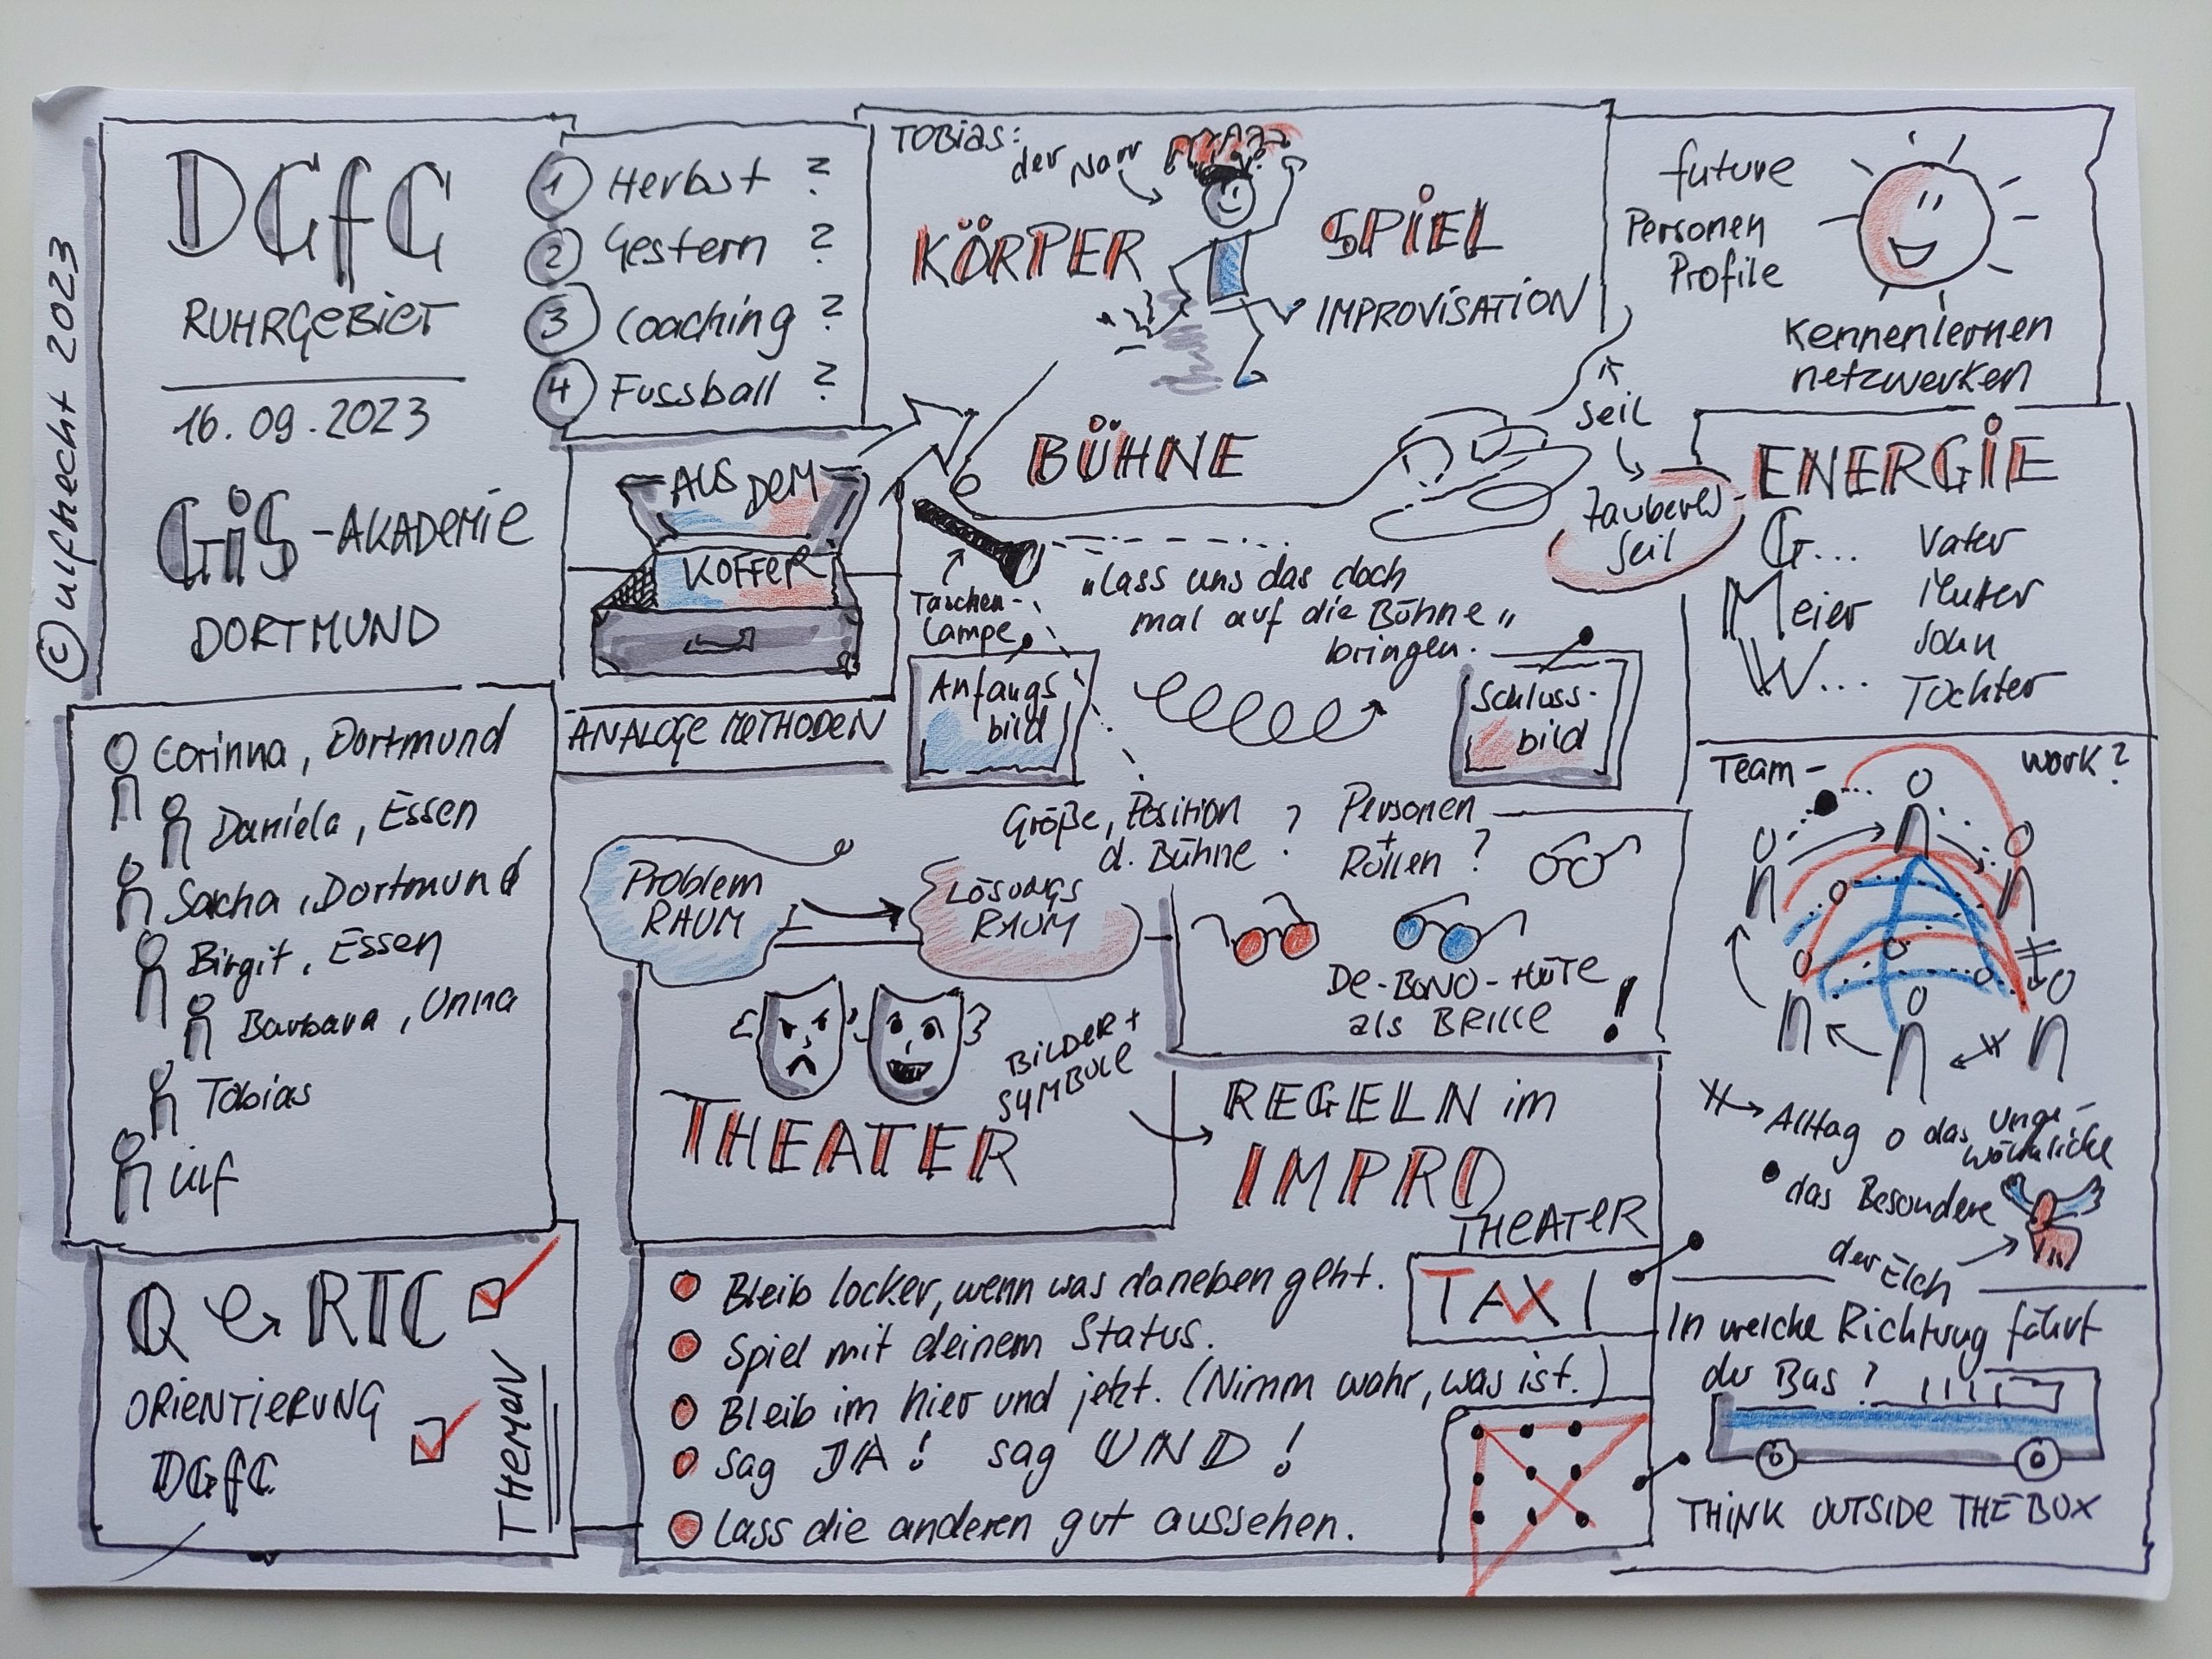 © ulfhecht 2023
DGfC
RUHRGEBIET
16.09.2023
GIS-AKADEMIE
DORTMUND
1 Herbst ?
2 Gestern ?
3 Coaching ?
4 Fussball ?
TOBIAS:
der Narr
KÖRPER
SPIEL
IMPROVISATION
BÜHNE
future
Personen
Profile
Kennenlernen
netzwerken
Seil
Zauber
Seil
AUS DEM
KOFFER
ANALOGE METHODEN
Taschen-
Lampe
„Lass uns das doch
mal auf die Bühne"
bringen.
Anfangs
bild
Schluss-
bild
ENERGIE
G... Vater
Meier Mutter
W... Sohn
Tochter
Corinna, Dortmund
Daniela, Essen
Sacha, Dortmund
Birgit, Essen
Barbara, Unna
Tobias
Ulf
Größe, Position
d. Bühne ?
Personen
+
Rollen ?
Problem
RAUM
LÖSUNGS
RAUM
DE-BONO-HÜTE
als BRILLE !
Team- work?
THEATER
BILDER +
SYMBOLE
REGELN im
IMPRO
THEATER
Alltag o das Unge-
wöhnliche
das Besondere
der Elch
Q RTC
ORIENTIERUNG
DGfC
THEMEN
Bleib locker, wenn was daneben geht.
Spiel mit deinem Status.
Bleib im hier und jetzt. (Nimm wahr, was ist.)
Sag JA! sag UND!
Lass die anderen gut aussehen.
TAXI
In welche Richtung fährt
der Bus?
THINK OUTSIDE THE BOX